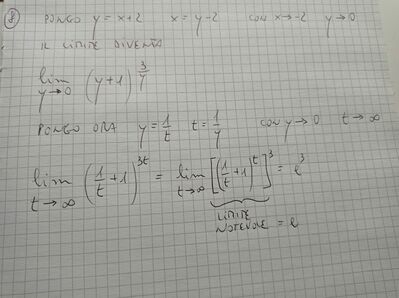 8 PONGO y = x+2 x = y-2 CON x→-2 y→0
IL LIMITE DIVENTA
lim y→0 (y+1)^(3/y)
PONGO ORA y = 1/t t = 1/y CON y→0 t→∞
lim t→∞ (1/t + 1)^(3t) = lim t→∞ [(1/t + 1)^t]^3 = e^3
LIMITE
NOTEVOLE = e